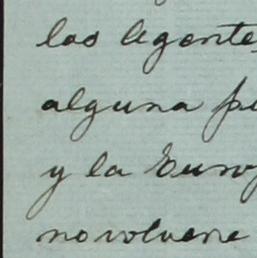 las Agente
alguna pe
y la Euro
no volvere